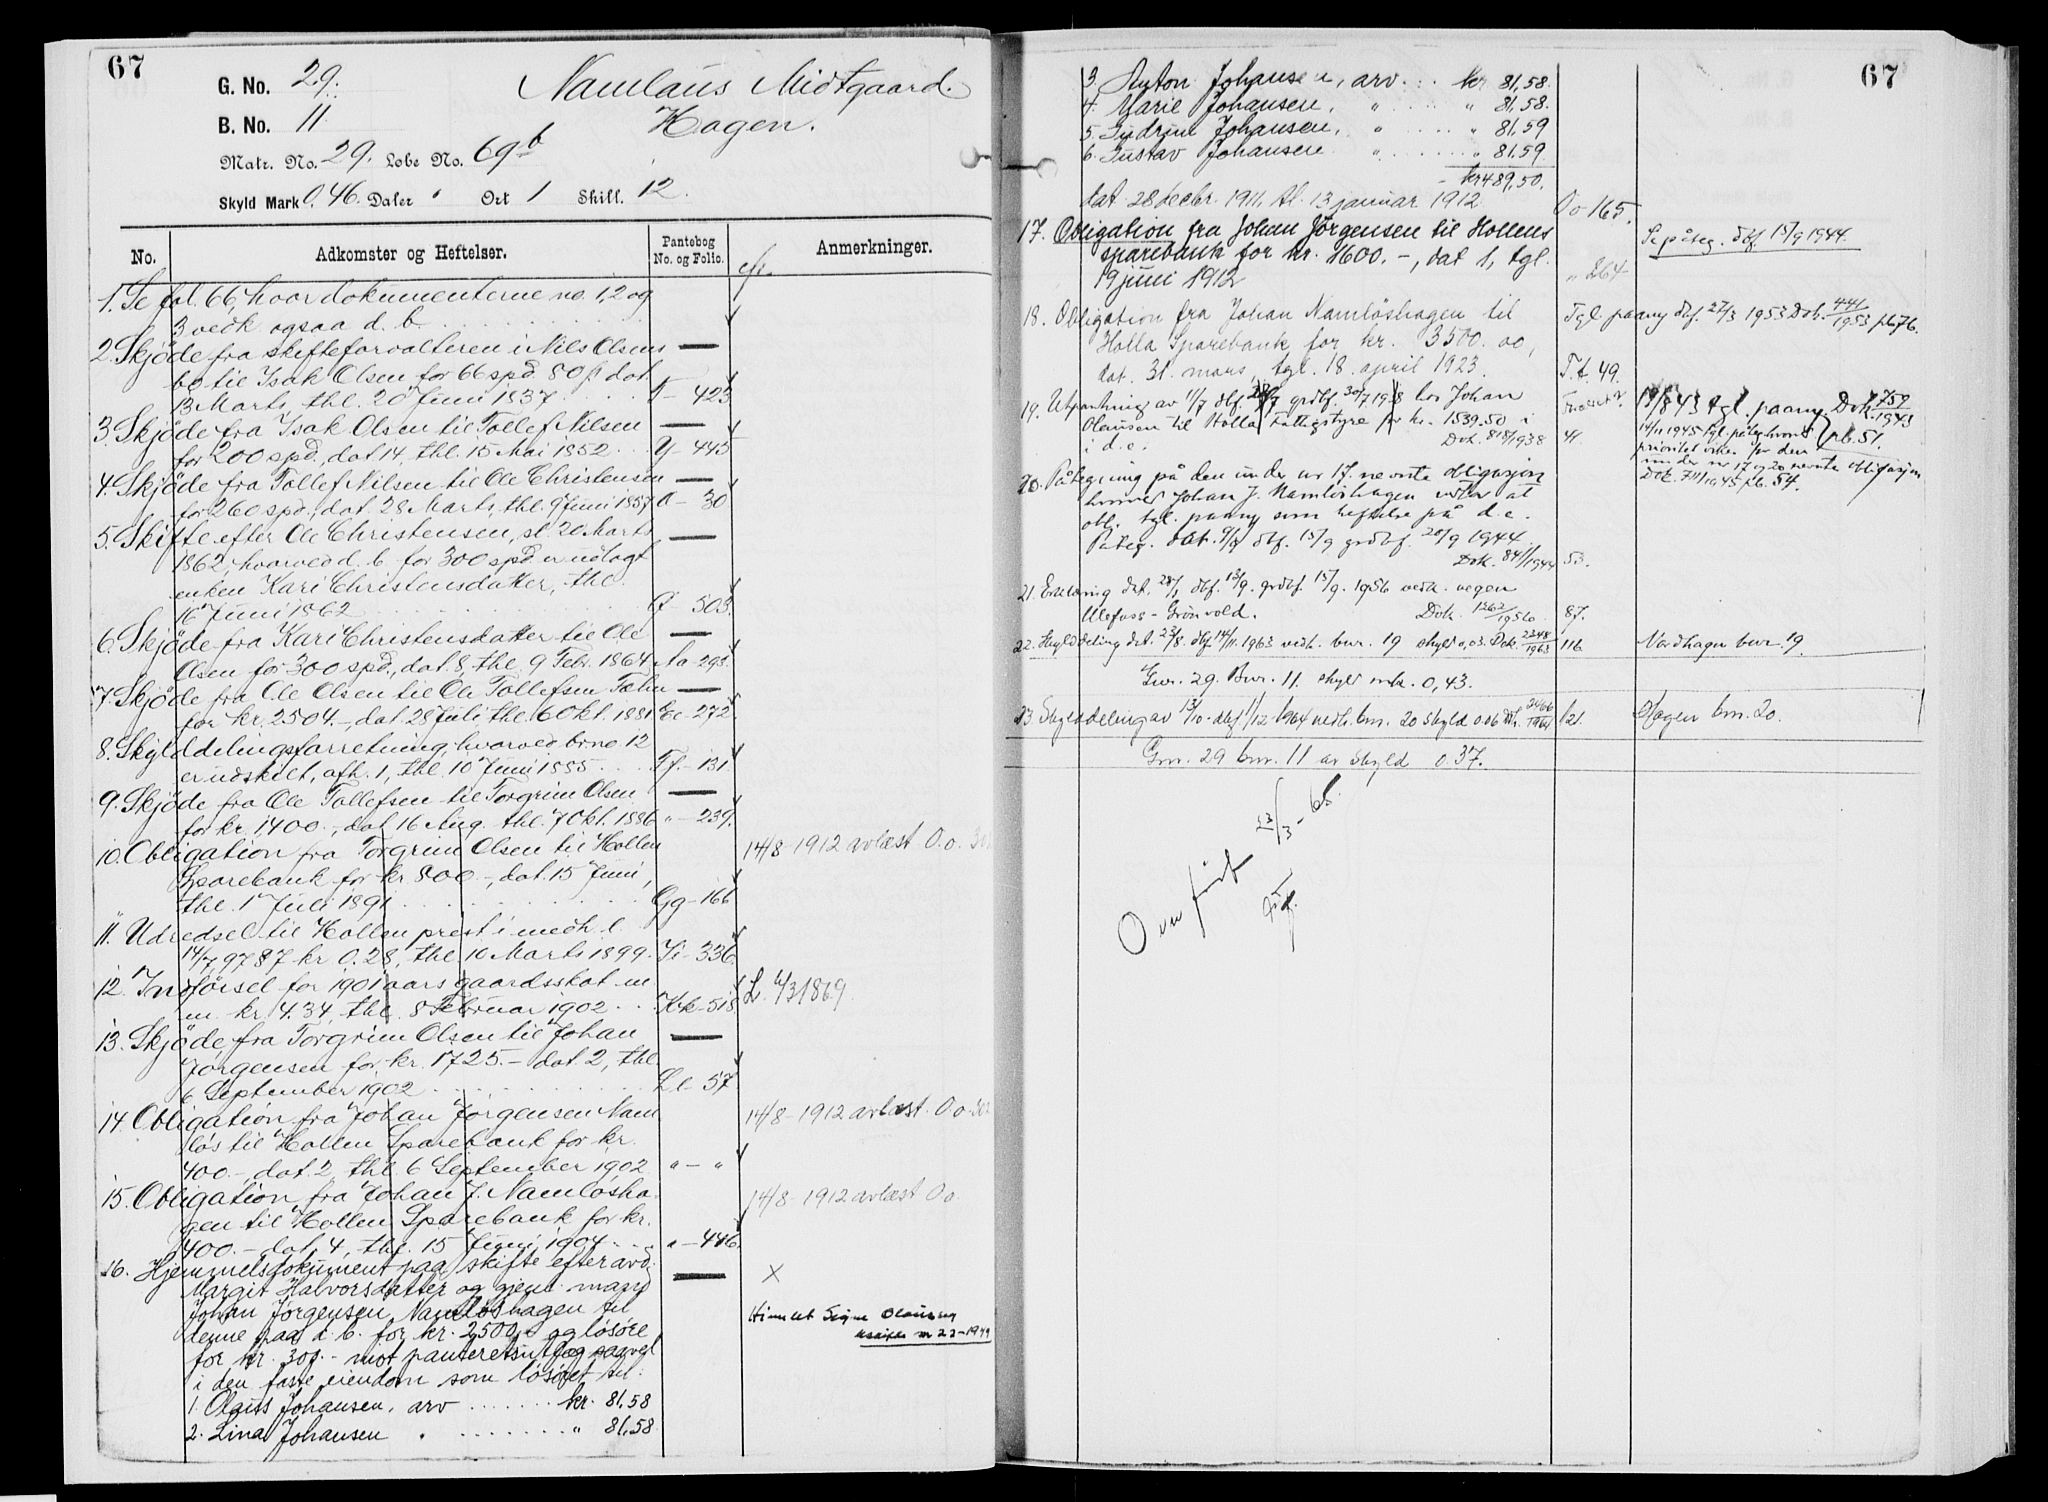 67
G. No. 29.
Namlaus Midtgaard.
B. No. 11
Hagen.
Matr. No. 29. Løbe No. 69b
Skyld Mark 0,46. Daler " Ort 1 Skill. 12.
No. Adkomster og Heftelser. Pantebog No. og Folio. Anmerkninger.
1. Se fol. 66, hvor dokumenterne no. 1, 2 og
3 vedk. ogsaa d. b.
2. Skjøde fra skifteforvalteren i Nils Olsens
bo til Isak Olsen for 66 spd. 80 β dat.
13 Marts, thl. 20 Juni 1837 423
3. Skjøde fra Isak Olsen til Tollef Nilsen
for 200 spd., dat. 14, thl. 15 Mai 1852. Y - 445
4. Skjøde fra Tollef Nilsen til Ole Christensen
for 260 spd., dat. 28 Marts, thl. 9 Juni 1857 30
5. Skifte efter Ole Christensen, sl. 20 Marts
1862, hvorved d. b. for 300 spd. er udlagt
enken Kari Christensdatter, thl.
16 Juni 1862 503.
6. Skjøde fra Kari Christensdatter til Ole
Olsen for 300 spd., dat. 8, thl. 9 Febr. 1864 Aa - 293.
7. Skjøde fra Ole Olsen til Ole Tollefsen
for kr. 2504.-, dat. 28 Juli thl. 6 Okt. 1881 Ee - 272
8. Skylddelingsforretning, hvorved br.no. 12
er udskilt, afh. 1, thl. 10 Juni 1885 Ff - 131
9. Skjøde fra Ole Tollefsen til Torgrim Olsen
for kr. 1400.-, dat. 16 Aug. thl. 7 Okt. 1886 " - 239.
10. Obligation fra Torgrim Olsen til Hollen 14/8-1912 avlæst O.o.
Sparebank for kr. 800.-, dat. 15 Juni,
thl. 1 Juli 1891 Gg - 166
11. Udredsel til Hollen prest i medh. l.
14/7 97 87 kr. 0.28, thl. 10 Marts 1899. Ii - 336.
12. Indførsel for 1901 aars gaardsskat m. L.
m. kr. 4.34, thl. 8 Februar 1902 Kk - 518
13. Skjøde fra Torgrim Olsen til Johan
Jørgensen for kr. 1725.- dat. 2, thl.
6 September 1902 Ll - 57
14. Obligation fra Johan Jørgensen Nam- 14/8-1912 avlæst. O.o.
løs til Hollen Sparebank for kr.
400.-, dat. 2, thl. 6 September 1902 " - "
15. Obligation fra Johan J. Namløsha- 14/8-1912 avlæst O.o.
gen til Hollen Sparebank for kr.
400.- dat. 4, thl. 15 Juni 1904 " - 446.
16. Hjemmelsdokument paa skifte efter avd.
Margit Halvorsdatter og gjenl. mand X
Johan Jørgensen Namløshagen til
denne paa d. b. for kr. 2500,- og løsøre
for kr. 300.- mot panteret saavel
i den faste eiendom som løsøret til:
1. Olaus Johansen, arv kr. 81,58
2. Lina Johansen " " 81,58
67
3. Anton Johansen, arv kr. 81,58.
4. Marie Johansen, " " 81,58.
5. Gudrun Johansen, " " 81,59
6. Gustav Johansen " " 81.59
kr 489,50.
dat 28 decbr. 1911, tl. 13 januar 1912 Oo 165.
17. Obligation fra Johan Jørgensen til Hollens
sparebank for kr. 1600.-, dat 1, tgl. Se påteg. dbf. 15/9 1944.
19 juni 1912 " 264
18. Obligation fra Johan Namløshagen til Tgl. paany dbf. 27/3 1953 Dok. 441/1953 pb. 76.
Holla Sparebank for kr. 3500.00,
dat. 31. mars, tgl. 18. april 1923. T.t. 49.
19. Utpantning av 11/7 dbf. grdbf. 30/7 1938 hos Johan
Olaussen til Holla Fattigstyre for kr. 1539.50 i
i d.e. Dok. 818/1938 41.
19/8 43 tgl. paany. Dok. 759/1943 pb. 51.
14/11 1945 tgl. påtegn hvorved
prioritet vikes for den
under nr 17 og 20 nevnte obligasjon
Dok. 711/1945 pb. 54.
20. Påtegning på den under nr 17. nevnte obligasjon
hvorved Johan J. Namløshagen vedtar at
obl. tgl. paany som heftelse på d.e.
Påteg. dat. 9/9 dbf. 15/9 grdbf. 20/9 1944.
Dok. 841/1944 53.
21. Erklæring dat. 28/1, dbf. 13/9. grdbf. 15/9. 1956 vedk. vegen
Ulefoss - Grönvold. Dok. 1262/1956 87.
22. Skylddeling dat. 23/8. dbf. 14/11. 1963 vedk. bnr. 19 skyld 0,03. Dok. 2248/1963 116. Nordhagen bnr. 19.
Gnr. 29. Bnr. 11. skyld mrk. 0,43.
23. Skylddeling av 13/10 - dbf 1/12-1964 vedk. bnr. 20 skyld 0.06 Dok. 2466/1964 121. Hagen bnr. 20.
Gnr. 29 bnr. 11 av skyld 0.37.
Overført 23/3-65